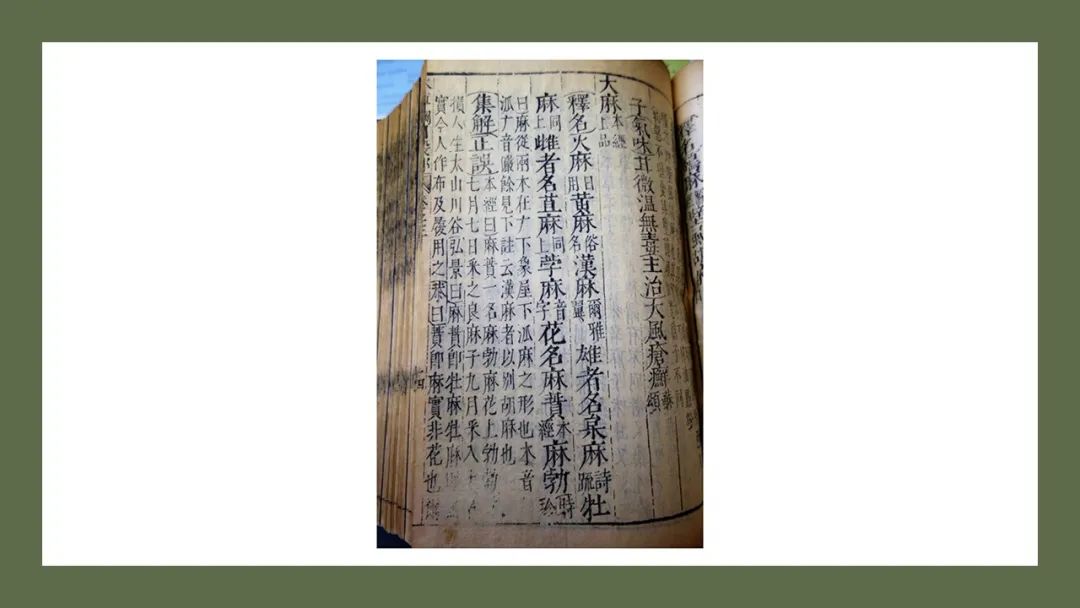 子氣味甘微溫無毒主治大風瘡癬頌
大麻本經上品
釋名火麻日用黃麻俗名漢麻爾雅翼雄者名枲麻詩疏牡
麻同上雌者名苴麻同上荸麻音字花名麻蕡本經麻勃時珍
曰麻從兩木在广下象屋下派麻之形也木音
派广音儼餘見下註云漢麻者以別胡麻也
集解正誤本經曰麻蕡一名麻勃麻花上勃勃
七月七日采之良麻子九月采入土
損人生太山川谷弘景曰麻蕡即牡麻牡麻
實今人作布及履用之恭曰蕡即麻實非花也